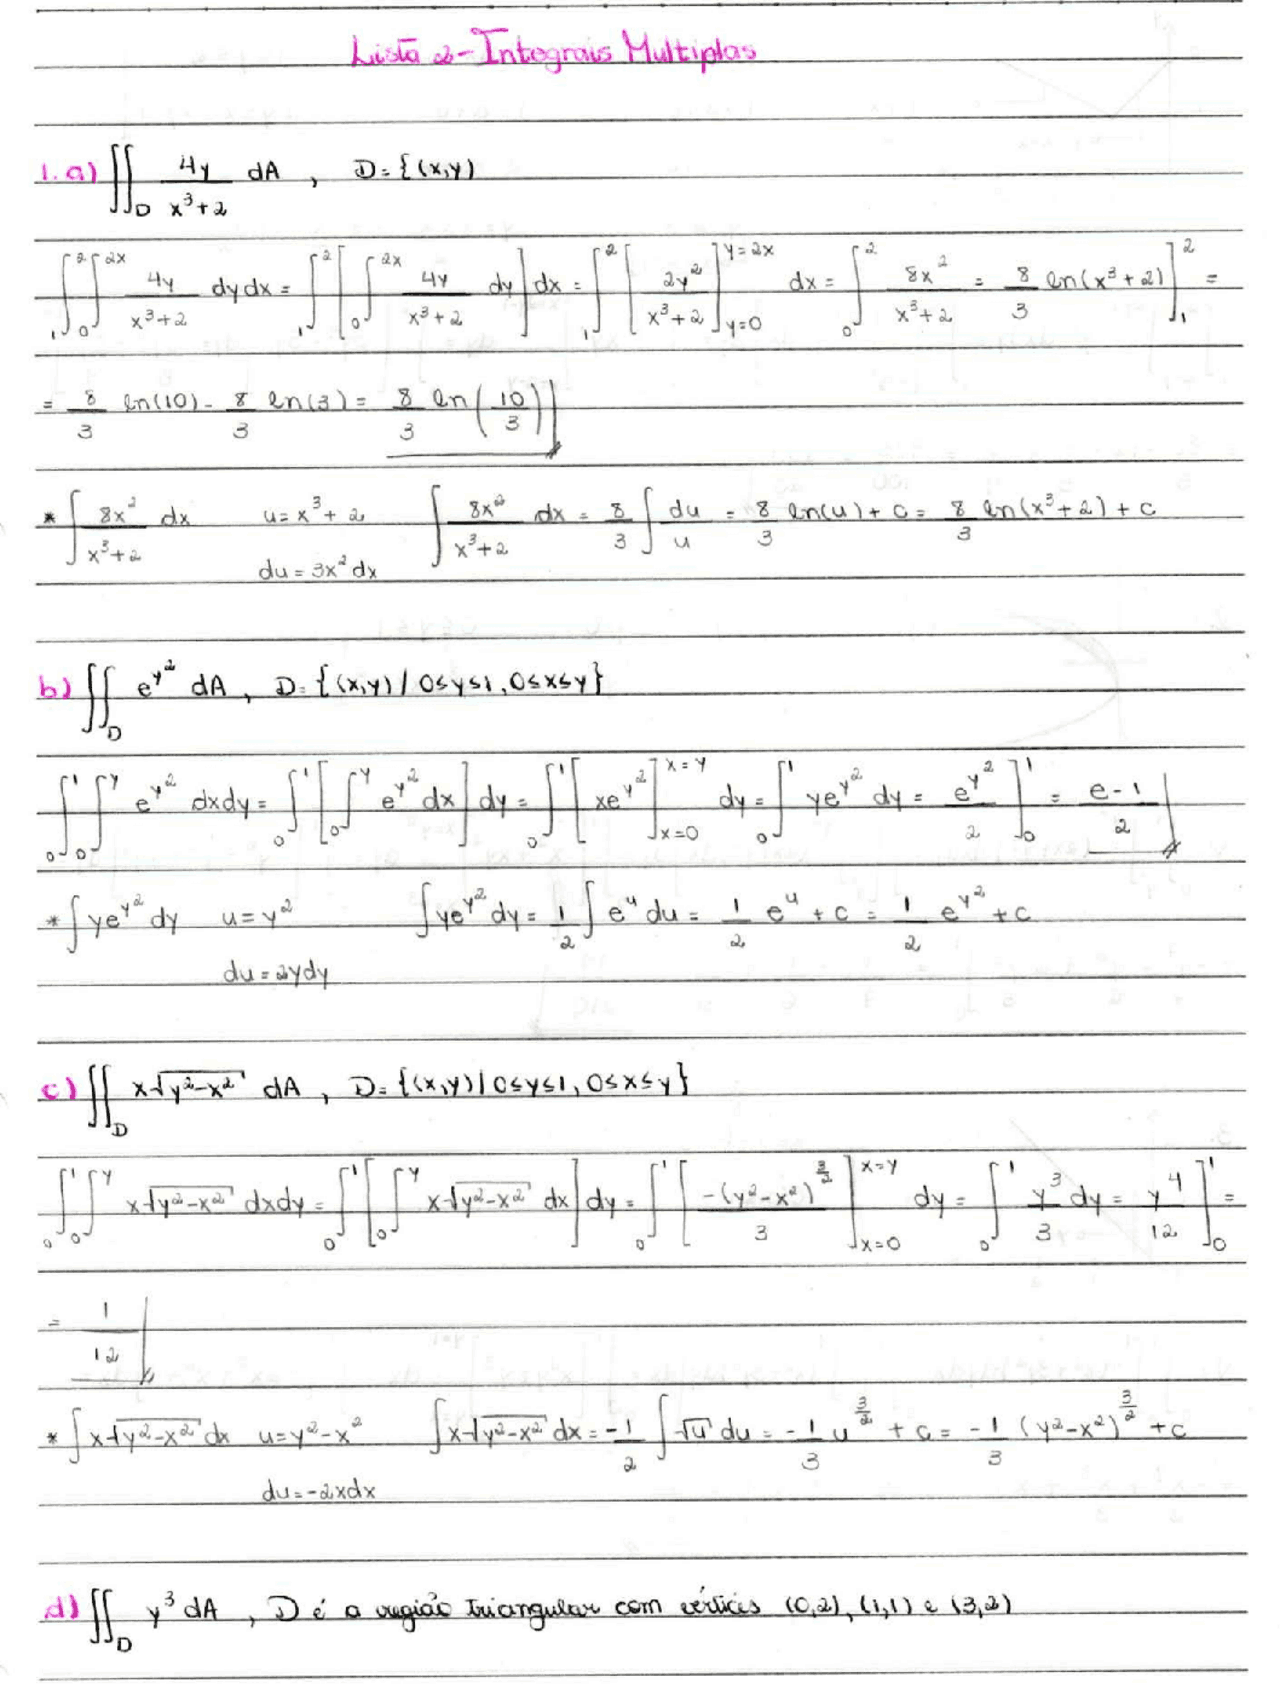 Lista 2 - Integrais Multiplas
1. a) ∬_D 4y/(x³+2) dA , D = {(x,y)
∫₁² ∫₀^{2x} 4y/(x³+2) dy dx = ∫₁² [ ∫₀^{2x} 4y/(x³+2) dy ] dx = ∫₁² [ 2y²/(x³+2) ]_{y=0}^{y=2x} dx = ∫₀² 8x²/(x³+2) = 8/3 ln(x³+2) ]₁² =
= 8/3 ln(10) - 8/3 ln(3) = 8/3 ln(10/3)
* ∫ 8x²/(x³+2) dx u = x³+2 ∫ 8x²/(x³+2) dx = 8/3 ∫ du/u = 8/3 ln(u) + c = 8/3 ln(x³+2) + c
du = 3x² dx
b) ∬_D e^{y²} dA , D = {(x,y) / 0≤y≤1, 0≤x≤y}
∫₀¹ ∫₀^y e^{y²} dxdy = ∫₀¹ [ ∫₀^y e^{y²} dx ] dy = ∫₀¹ [ xe^{y²} ]_{x=0}^{x=y} dy = ∫₀¹ ye^{y²} dy = e^{y²}/2 ]₀¹ = (e-1)/2
* ∫ ye^{y²} dy u = y² ∫ ye^{y²} dy = 1/2 ∫ e^u du = 1/2 e^u + c = 1/2 e^{y²} + c
du = 2ydy
c) ∬_D x√(y²-x²) dA , D = {(x,y) | 0≤y≤1, 0≤x≤y}
∫₀¹ ∫₀^y x√(y²-x²) dxdy = ∫₀¹ [ ∫₀^y x√(y²-x²) dx ] dy = ∫₀¹ [ -(y²-x²)^{3/2}/3 ]_{x=0}^{x=y} dy = ∫₀¹ y³/3 dy = y⁴/12 ]₀¹ =
= 1/12
* ∫ x√(y²-x²) dx u = y²-x² ∫ x√(y²-x²) dx = -1/2 ∫ √u du = -1/3 u^{3/2} + c = -1/3 (y²-x²)^{3/2} + c
du = -2xdx
d) ∬_D y³ dA , D é a região triangular com vértices (0,2), (1,1) e (3,2)